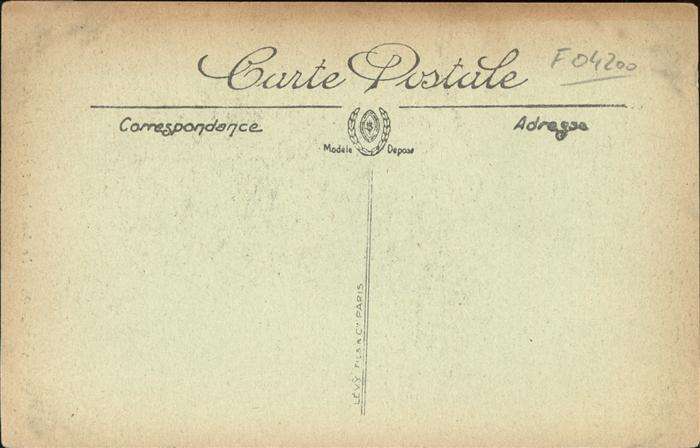 Carte Postale
F 04200
Correspondance
Adresse
Modèle Déposé
LÉVY FILS & Cie PARIS